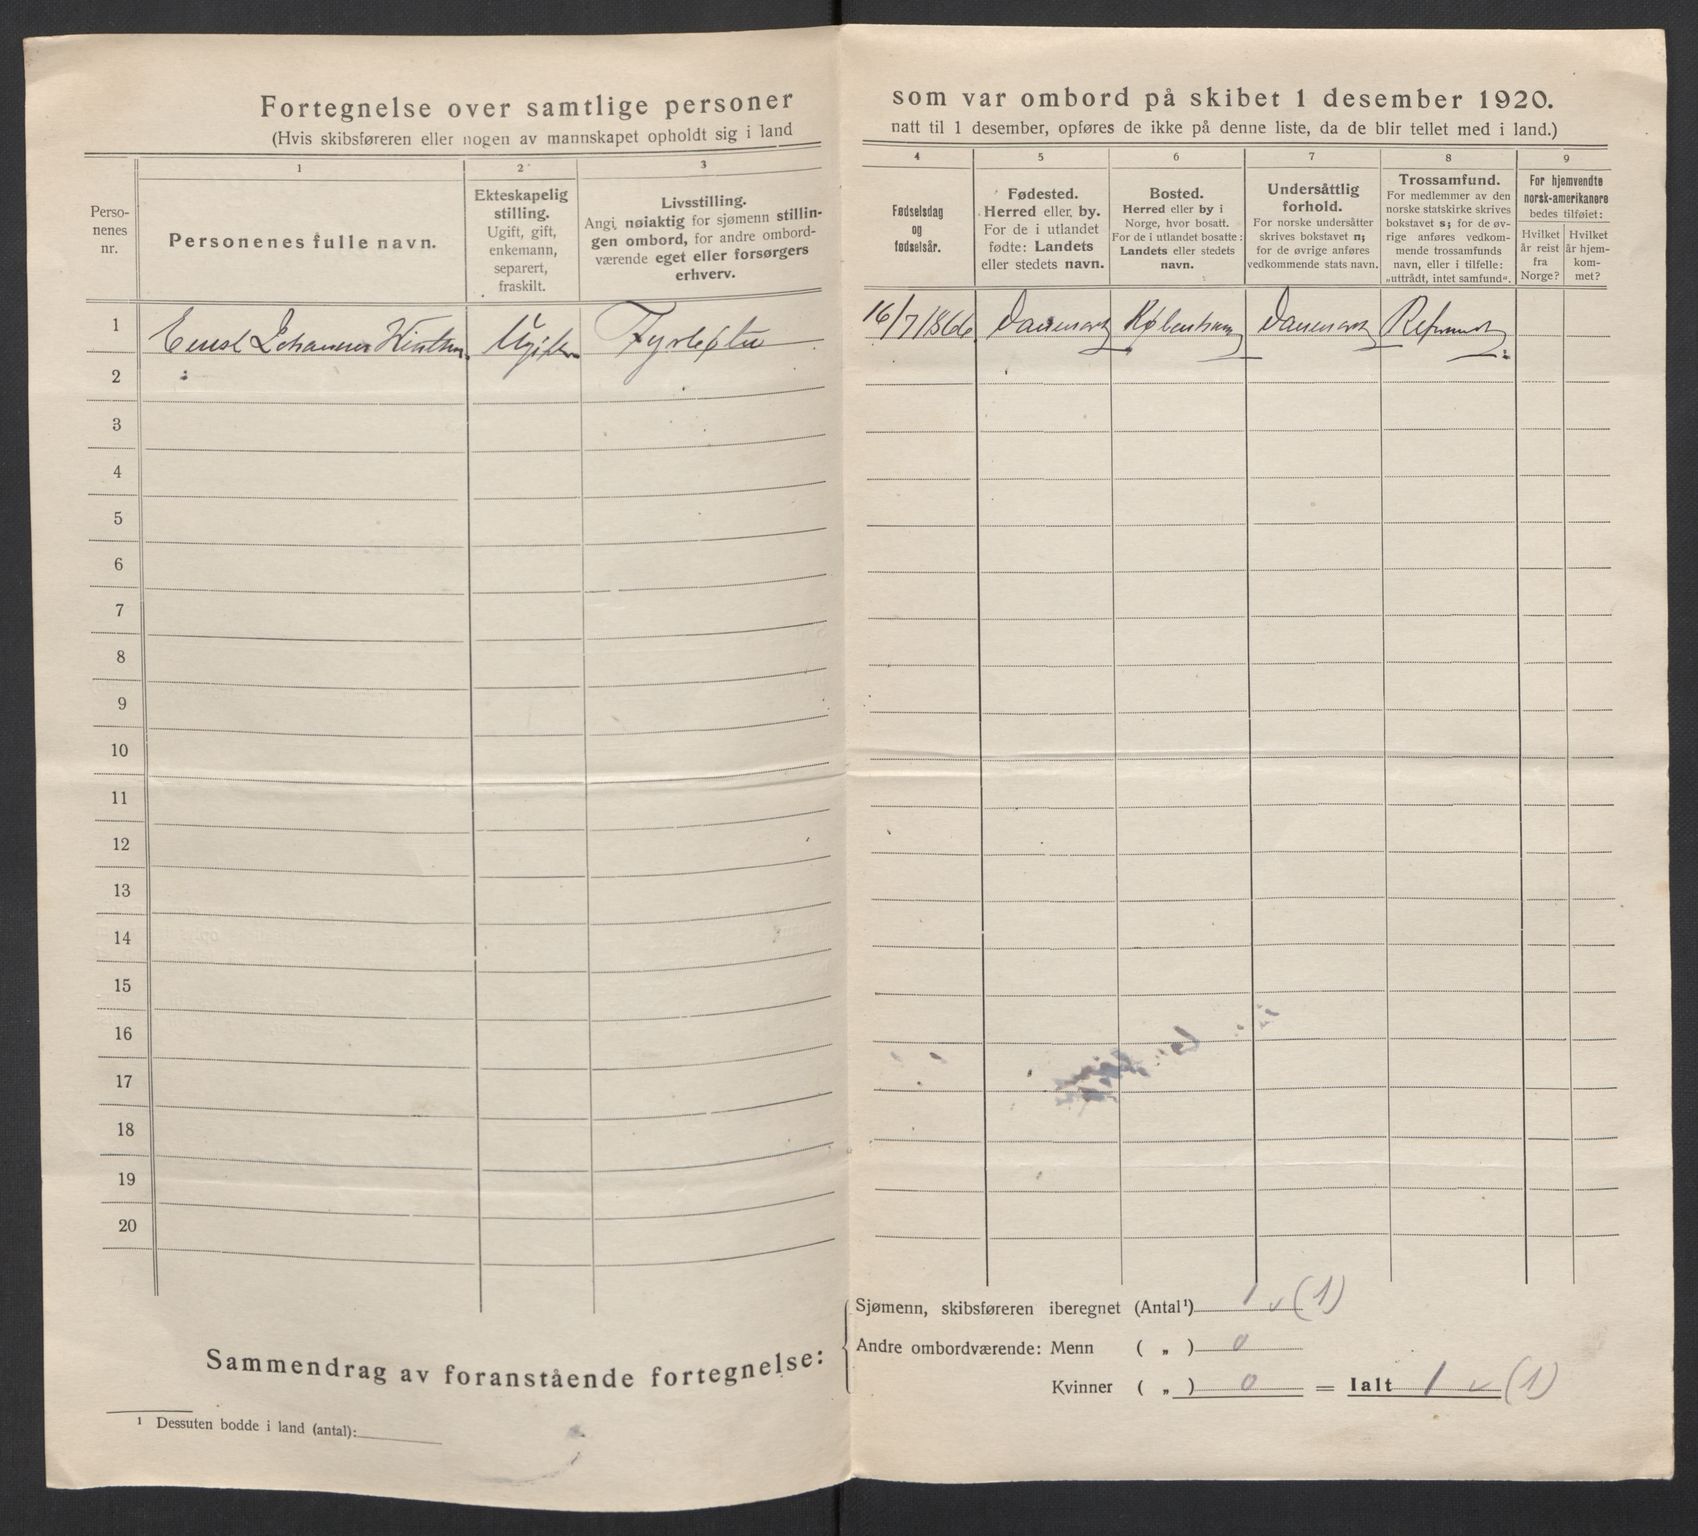 Fortegnelse over samtlige personer som var ombord på skibet 1 desember 1920.
(Hvis skibsføreren eller nogen av mannskapet opholdt sig i land natt til 1 desember, opføres de ikke på denne liste, da de blir tellet med i land.)
1 2 3 4 5 6 7 8 9
Perso-
nenes
nr.
Personenes fulle navn.
Ekteskapelig
stilling.
Ugift, gift,
enkemann,
separert,
fraskilt.
Livsstilling.
Angi nøiaktig for sjømenn stillin-
gen ombord, for andre ombord-
værende eget eller forsørgers
erhverv.
Fødselsdag
og
fødselsår.
Fødested.
Herred eller by.
For de i utlandet
fødte: Landets
eller stedets navn.
Bosted.
Herred eller by i
Norge, hvor bosatt.
For de i utlandet bosatte:
Landets eller stedets
navn.
Undersåttlig
forhold.
For norske undersåtter
skrives bokstavet n;
for de øvrige anføres
vedkommende stats navn.
Trossamfund.
For medlemmer av den
norske statskirke skrives
bokstavet s; for de øv-
rige anføres vedkom-
mende trossamfunds
navn, eller i tilfelle:
„uttrådt, intet samfund“.
For hjemvendte
norsk-amerikanere
bedes tilføiet:
Hvilket
år reist
fra
Norge?
Hvilket
år hjem-
kom-
met?
1 Johannes Ugift Fyrbøter 16/7 1866 Danmark København Danmark
2
3
4
5
6
7
8
9
10
11
12
13
14
15
16
17
18
19
20
Sammendrag av foranstående fortegnelse:
Sjømenn, skibsføreren iberegnet (Antal¹) 1 v (1)
Andre ombordværende: Menn ( „ ) 0
Kvinner ( „ ) 0 = Ialt 1 v (1)
¹ Dessuten bodde i land (antal):